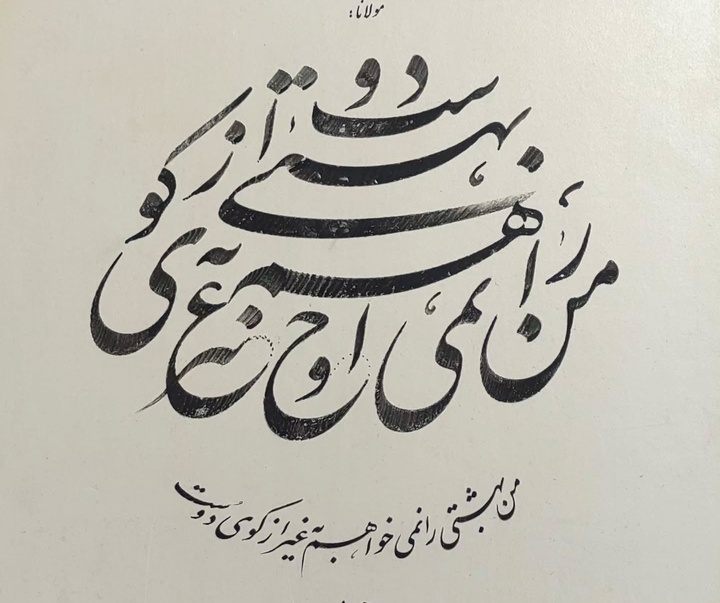 مولانا:
من بهشتی را نمی خواهم به غیر از کوی دوست
من بهشتی را نمی خواهم به غیر از کوی دوست